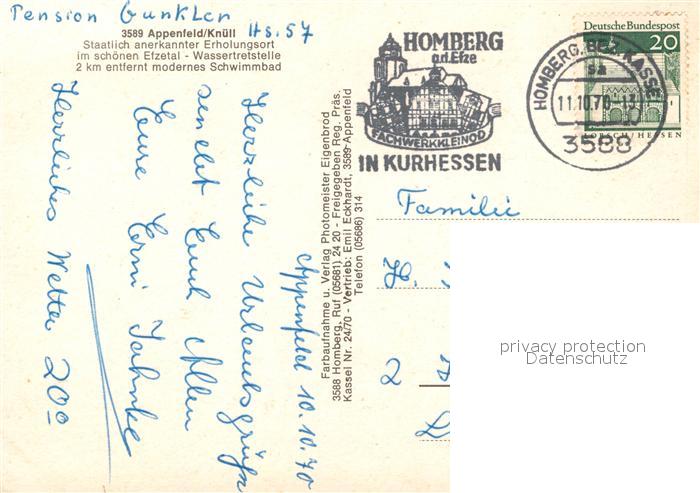 Pension Gunkler
Hs. 57
3589 Appenfeld/Knüll
Staatlich anerkannter Erholungsort
im schönen Efzetal - Wassertretstelle
2 km entfernt modernes Schwimmbad
Appenfeld 10.10.70
Herzliche Urlaubsgrüße
sendet Euch Allen
Eure Erni Jahnke
Herrliches Wetter 20°
Farbaufnahme u. Verlag Photomeister Eigenbrod
3588 Homberg, Ruf (05681) 24 20 - Freigegeben Reg. Präs.
Kassel Nr. 24/70 - Vertrieb: Emil Eckhardt, 3589 Appenfeld
Telefon (05686) 314
HOMBERG
a.d. Efze
FACHWERKKLEINOD
IN KURHESSEN
HOMBERG, BEZ. KASSEL
sa
11.10.70-13
3588
Deutsche Bundespost
20
LORSCH/HESSEN
Familie
H.
2
privacy protection
Datenschutz